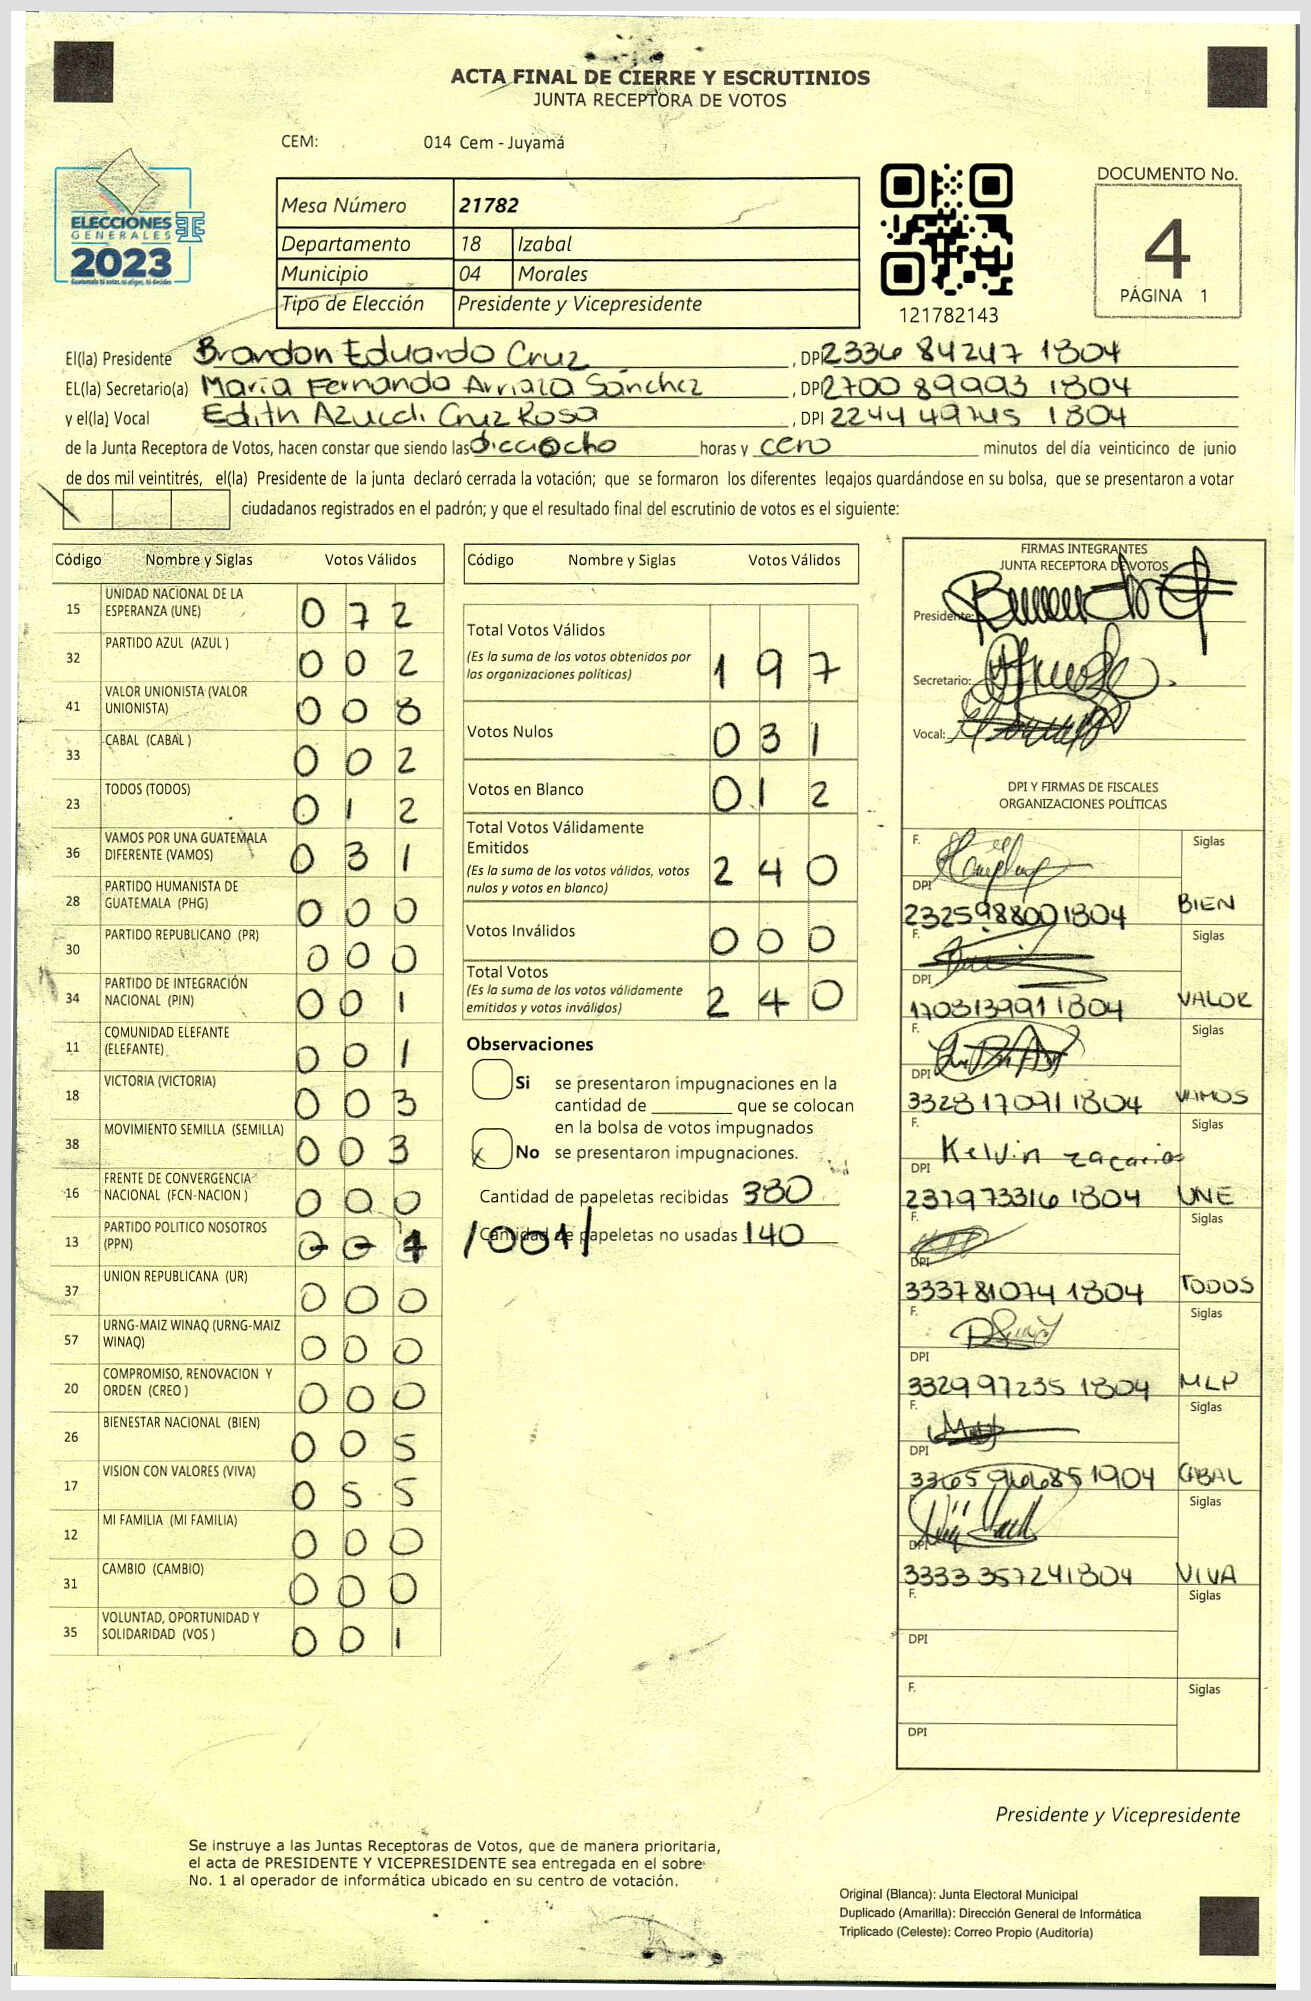 ACTA FINAL DE CIERRE Y ESCRUTINIOS
JUNTA RECEPTORA DE VOTOS
CEM: 014 Cem - Juyamá
ELECCIONES
GENERALES
2023
Mesa Número 21782
Departamento 18 Izabal
Municipio 04 Morales
Tipo de Elección Presidente y Vicepresidente
121782143
DOCUMENTO No.
4
PÁGINA 1
El(la) Presidente Brandon Eduardo Cruz , DPI 2336 84247 1804
EL(la) Secretario(a) María Fernando Arriaza Sánchez , DPI 2700 89993 1804
y el(la) Vocal Edith Azucdi Cruz Rosa , DPI 2244 49745 1804
de la Junta Receptora de Votos, hacen constar que siendo las dicciocho horas y cero minutos del día veinticinco de junio
de dos mil veintitrés, el(la) Presidente de la junta declaró cerrada la votación; que se formaron los diferentes legajos guardándose en su bolsa, que se presentaron a votar
ciudadanos registrados en el padrón; y que el resultado final del escrutinio de votos es el siguiente:
Código Nombre y Siglas Votos Válidos
15 UNIDAD NACIONAL DE LA ESPERANZA (UNE) 0 7 2
32 PARTIDO AZUL (AZUL ) 0 0 2
41 VALOR UNIONISTA (VALOR UNIONISTA) 0 0 8
33 CABAL (CABAL ) 0 0 2
23 TODOS (TODOS) 0 1 2
36 VAMOS POR UNA GUATEMALA DIFERENTE (VAMOS) 0 3 1
28 PARTIDO HUMANISTA DE GUATEMALA (PHG) 0 0 0
30 PARTIDO REPUBLICANO (PR) 0 0 0
34 PARTIDO DE INTEGRACIÓN NACIONAL (PIN) 0 0 1
11 COMUNIDAD ELEFANTE (ELEFANTE) 0 0 1
18 VICTORIA (VICTORIA) 0 0 3
38 MOVIMIENTO SEMILLA (SEMILLA) 0 0 3
16 FRENTE DE CONVERGENCIA NACIONAL (FCN-NACION ) 0 0 0
13 PARTIDO POLITICO NOSOTROS (PPN) 0 0 1 /001/
37 UNION REPUBLICANA (UR) 0 0 0
57 URNG-MAIZ WINAQ (URNG-MAIZ WINAQ) 0 0 0
20 COMPROMISO, RENOVACION Y ORDEN (CREO ) 0 0 0
26 BIENESTAR NACIONAL (BIEN) 0 0 5
17 VISION CON VALORES (VIVA) 0 5 5
12 MI FAMILIA (MI FAMILIA) 0 0 0
31 CAMBIO (CAMBIO) 0 0 0
35 VOLUNTAD, OPORTUNIDAD Y SOLIDARIDAD (VOS ) 0 0 1
Código Nombre y Siglas Votos Válidos
Total Votos Válidos 1 9 7
(Es la suma de los votos obtenidos por
las organizaciones políticas)
Votos Nulos 0 3 1
Votos en Blanco 0 1 2
Total Votos Válidamente
Emitidos 2 4 0
(Es la suma de los votos válidos, votos
nulos y votos en blanco)
Votos Inválidos 0 0 0
Total Votos 2 4 0
(Es la suma de los votos válidamente
emitidos y votos inválidos)
Observaciones
Si se presentaron impugnaciones en la
cantidad de ________ que se colocan
en la bolsa de votos impugnados
x No se presentaron impugnaciones.
Cantidad de papeletas recibidas 380
Cantidad de papeletas no usadas 140
FIRMAS INTEGRANTES
JUNTA RECEPTORA DE VOTOS
Presidente:
Secretario:
Vocal:
DPI Y FIRMAS DE FISCALES
ORGANIZACIONES POLÍTICAS
F. Siglas
DPI 2325988001804 BIEN
F. Siglas
DPI 1703139911804 VALOR
F. Siglas
DPI 3328170911804 VAMOS
F. Kelvin zacarias Siglas
DPI 2379733161804 UNE
F. Siglas
DPI 3337810741804 TODOS
F. Siglas
DPI 3329972351804 MLP
F. Siglas
DPI CABAL
F. Siglas
DPI 3333357241804 VIVA
F. Siglas
DPI
F. Siglas
DPI
Presidente y Vicepresidente
Se instruye a las Juntas Receptoras de Votos, que de manera prioritaria,
el acta de PRESIDENTE Y VICEPRESIDENTE sea entregada en el sobre
No. 1 al operador de informática ubicado en su centro de votación.
Original (Blanca): Junta Electoral Municipal
Duplicado (Amarilla): Dirección General de Informática
Triplicado (Celeste): Correo Propio (Auditoria)